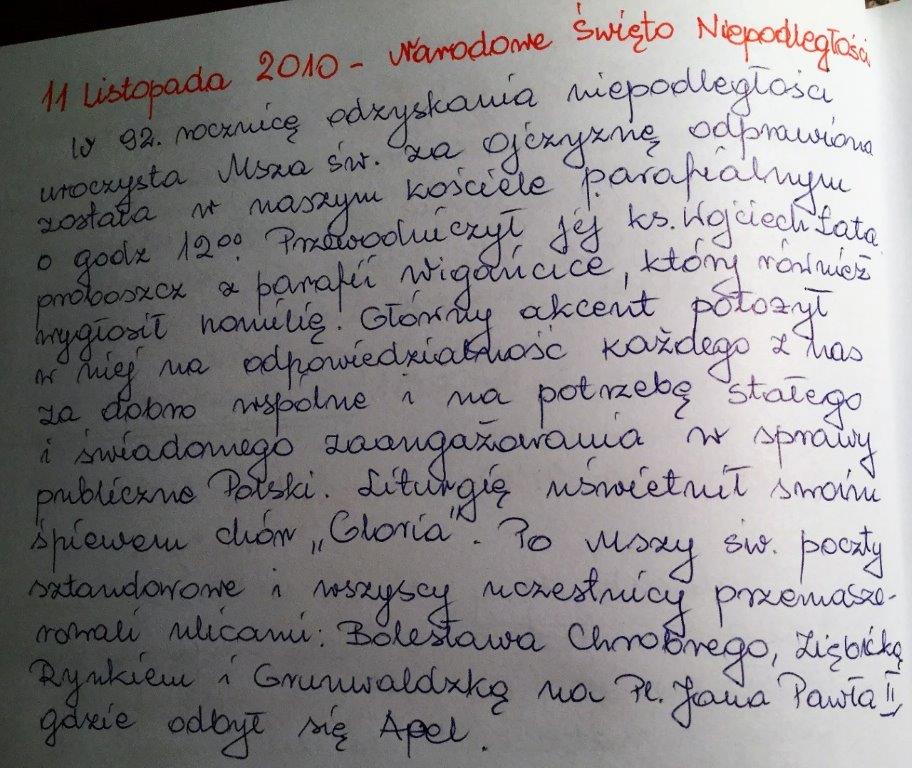 11 Listopada 2010 - Narodowe Święto Niepodległości
W 92. rocznicę odzyskania niepodległości
uroczysta Msza św. za Ojczyznę odprawiona
została w naszym kościele parafialnym
o godz 12⁰⁰. Przewodniczył jej ks. Wojciech Łata
proboszcz z parafii Wigańcice, który również
wygłosił homilię. Główny akcent położył
w niej na odpowiedzialność każdego z nas
za dobro wspólne i na potrzebę stałego
i świadomego zaangażowania w sprawy
publiczne Polski. Liturgię uświetnił swoim
śpiewem chór „Gloria". Po Mszy św. poczty
sztandarowe i wszyscy uczestnicy przemasze-
rowali ulicami: Bolesława Chrobrego, Ziębicką
Rynkiem i Grunwaldzką na Pl. Jana Pawła II,
gdzie odbył się Apel.